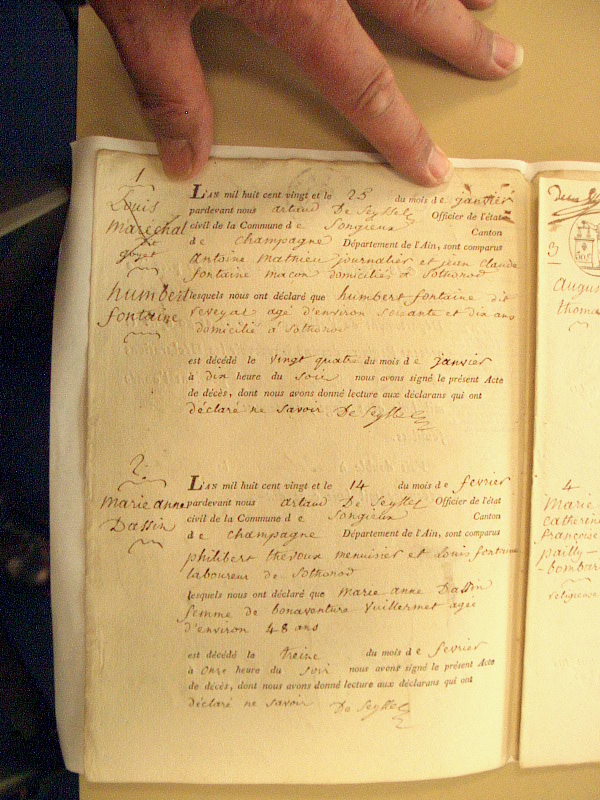 1
Louis
marechal
humbert
fontaine
LAN mil huit cent vingt et le 25 du mois de janvier
pardevant nous artaud De Seyssel Officier de l'état
civil de la Commune de Songieux Canton
de champagne Département de l'Ain, sont comparus
antoine mathieu journalier et jean claude
fontaine macon domiciliés a Sothonod
lesquels nous ont déclaré que humbert fontaine dit
reveyat agé d'environ soixante et dix ans
domicilié a sothonod
est décédé le vingt quatre du mois de janvier
à dix heure du soir nous avons signé le présent Acte
de décès, dont nous avons donné lecture aux déclarans qui ont
déclaré ne savoir De Seyssel
2
marie anne
Dassin
LAN mil huit cent vingt et le 14 du mois de fevrier
pardevant nous artaud De Seyssel Officier de l'état
civil de la Commune de Songieux Canton
de champagne Département de l'Ain, sont comparus
philibert thevoux menuisier et Louis fontaine
laboureur de Sothonod
lesquels nous ont déclaré que marie anne Dassin
femme de bonaventure Vuillermet agée
d'environ 48 ans
est décédé le treize du mois de fevrier
à onze heure du soir nous avons signé le présent Acte
de décès, dont nous avons donné lecture aux déclarans qui ont
déclaré ne savoir De Seyssel
3
Augus
thoma
4
Marie
Catherine
françoise
pailly
-bombar
religieuse